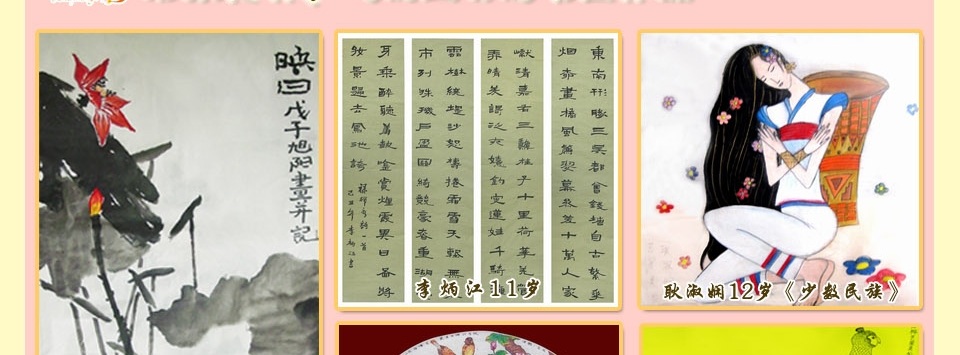 映日
戊子旭阳畫并記
東南形勝三吴都會錢塘自古繁華
烟柳畫橋風簾翠幕參差十萬人家
巘清嘉有三秋桂子十里荷花羌
弄晴菱歌泛夜嬉嬉釣叟蓮娃千騎
雲樹繞堤沙怒濤捲霜雪天塹無
市列珠璣户盈羅綺競豪奢重湖
牙乘醉聽簫鼓吟賞煙霞異日圖將
好景歸去鳳池誇
李炳江 11岁
耿淑娴12岁《少数民族》